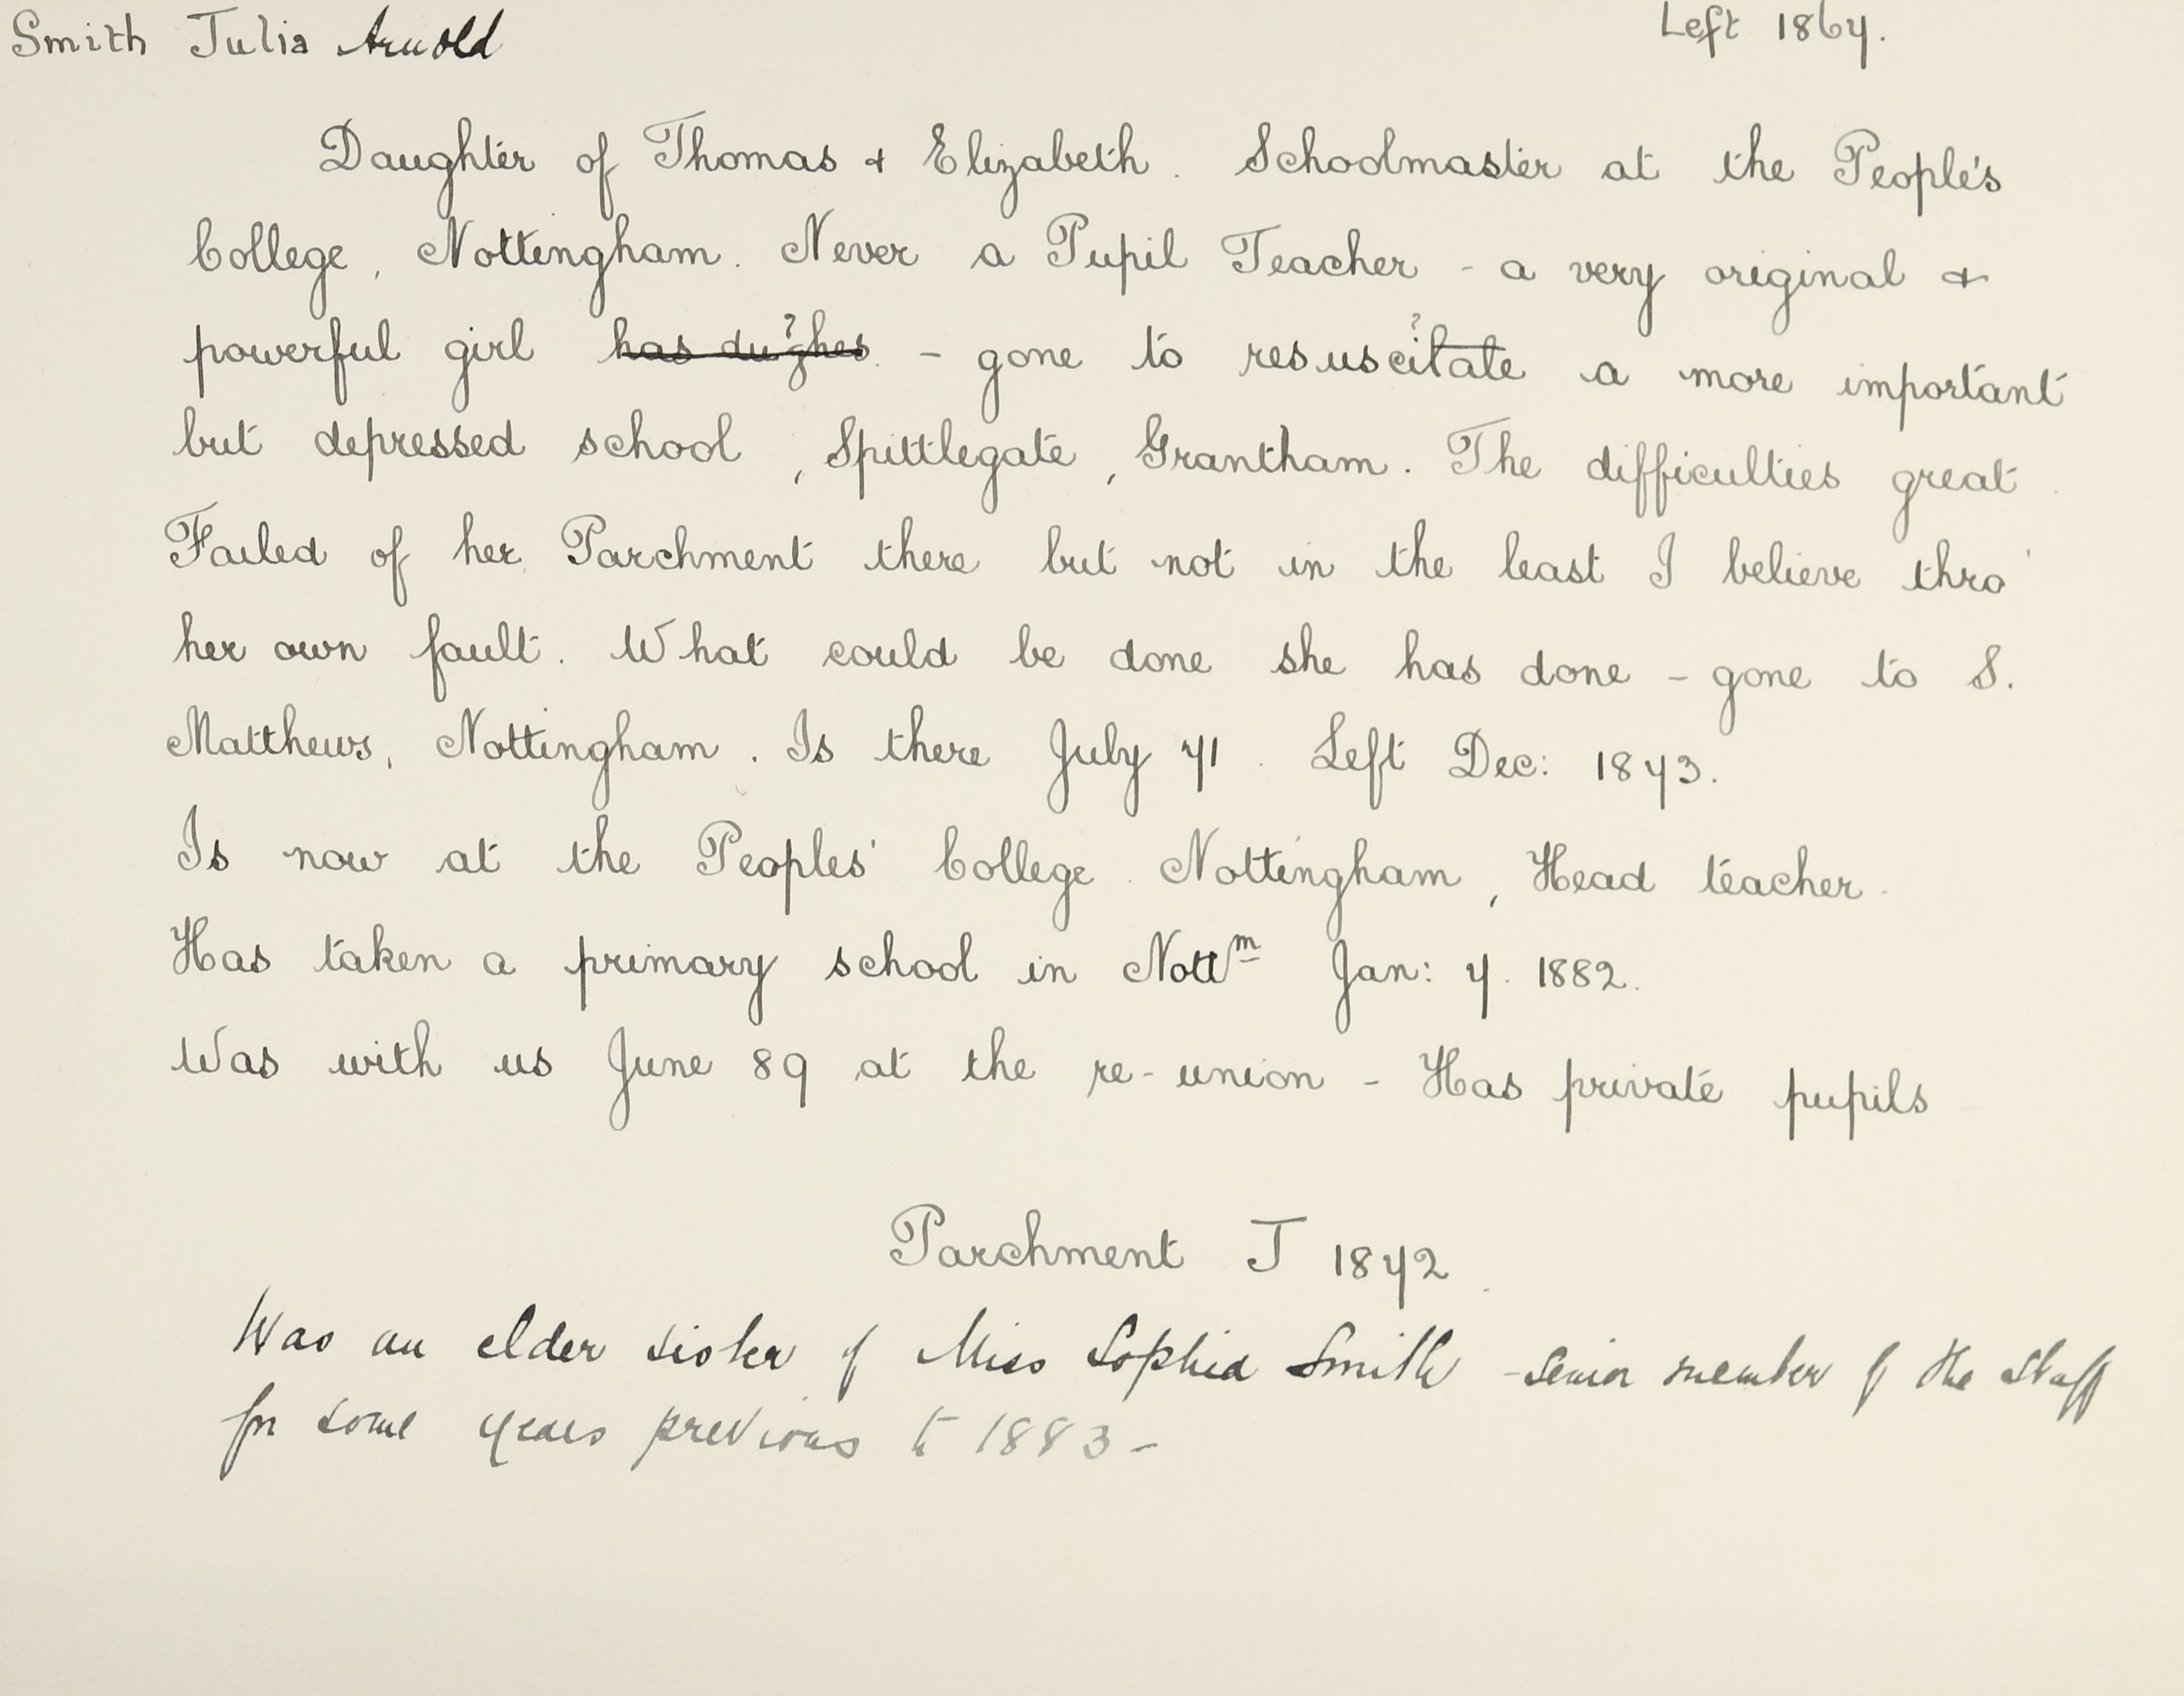 Smith Julia Arnold Left 1867.
Daughter of Thomas & Elizabeth. Schoolmaster at the People's
College, Nottingham. Never a Pupil Teacher - a very original &
powerful girl has du?ghes. - gone to resuscitate a more important
but depressed school, Spittlegate, Grantham. The difficulties great.
Failed of her Parchment there but not in the least I believe thro'
her own fault. What could be done she has done - gone to S.
Matthews, Nottingham. Is there July 71. Left Dec: 1873.
Is now at the Peoples' College. Nottingham, Head teacher.
Has taken a primary school in Nottm Jan: 7. 1882.
Was with us June 89 at the re-union - Has private pupils
Parchment J 1872.
Was an elder sister of Miss Sophia Smith - senior member of the staff
for some years previous to 1883 -